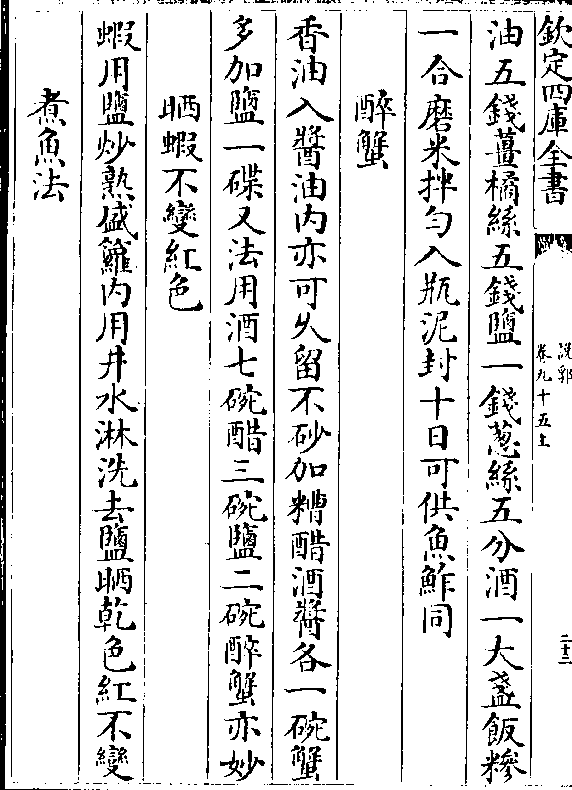 欽定四庫全書
說郛
卷九十五上
二十三
油五錢薑橘絲五錢鹽一錢蔥絲五分酒一大盞飯糝
一合磨米拌勻入瓶泥封十日可供魚鮓同
醉蟹
香油入醬油內亦可久留不砂加糟醋酒醬各一碗蟹
多加鹽一碟又法用酒七碗醋三碗鹽二碗醉蟹亦妙
晒蝦不變紅色
蝦用鹽炒熟盛籮內用井水淋洗去鹽晒乾色紅不變
煮魚法